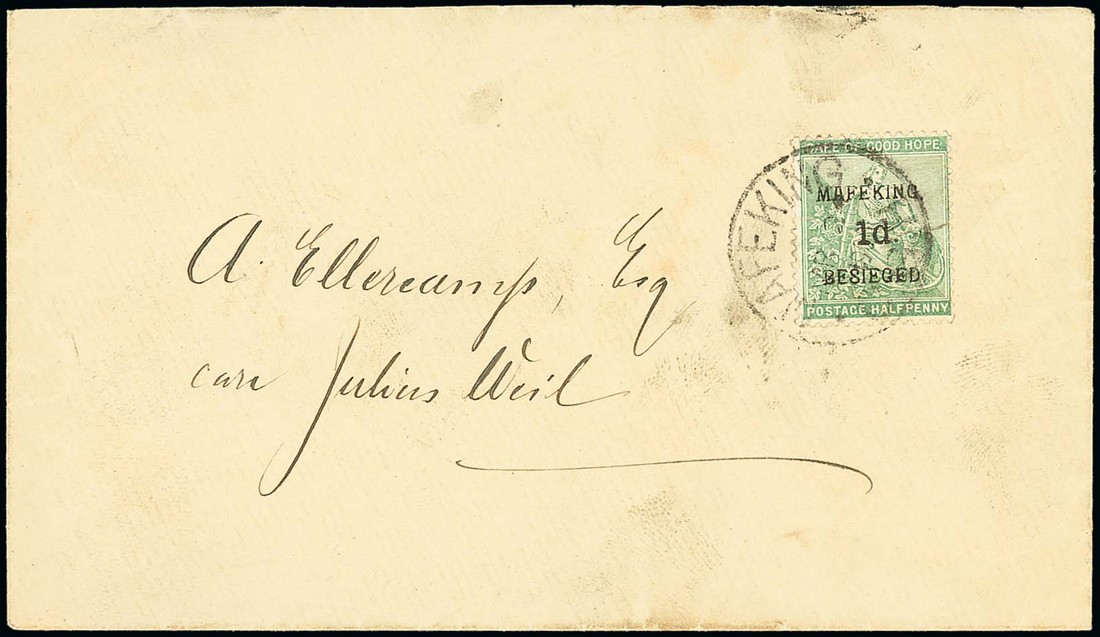 CAPE OF GOOD HOPE.
MAFEKING
MAFEKING
1d.
BESIEGED.
POSTAGE HALFPENNY
A. Ellercamp, Esq
care Julius Weil